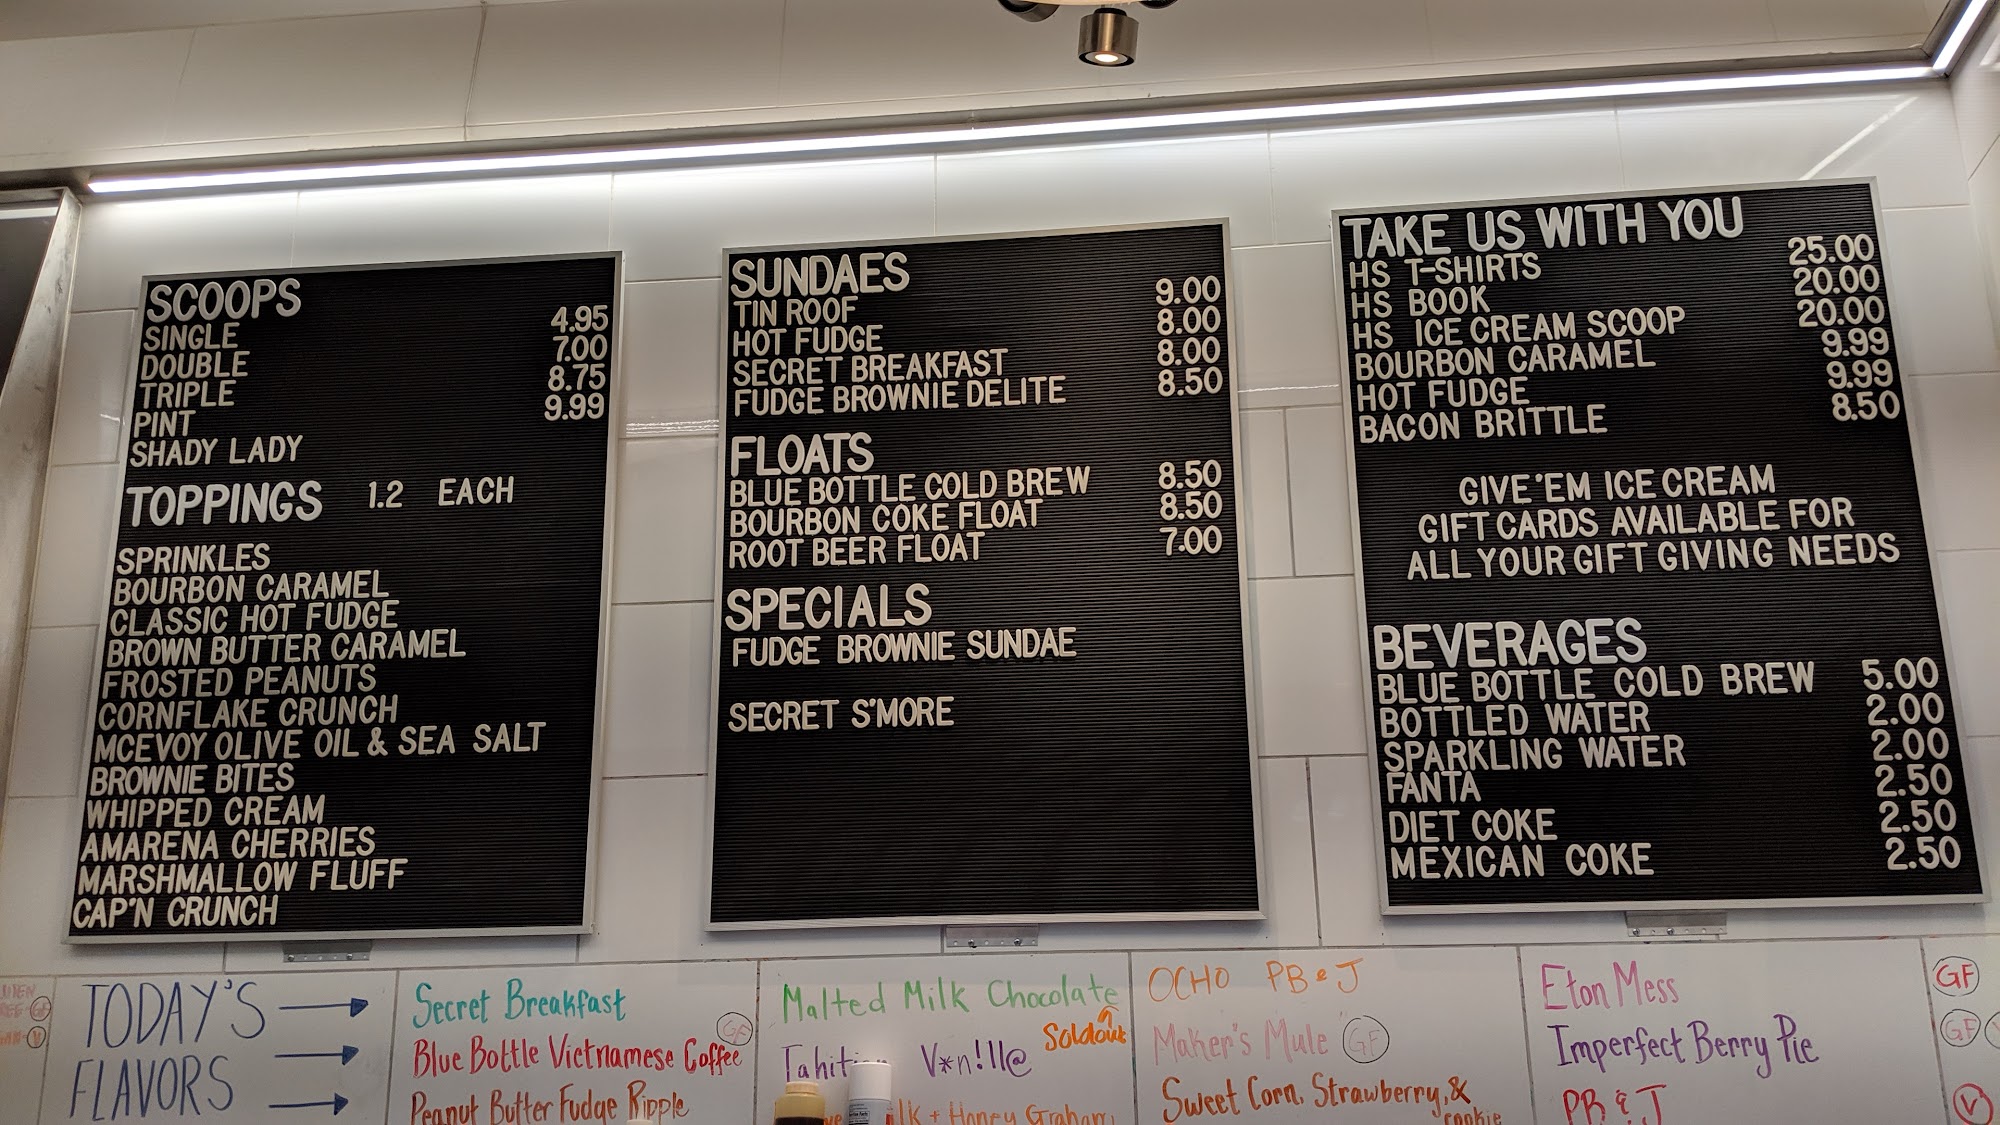 SCOOPS
SINGLE 4.95
DOUBLE 7.00
TRIPLE 8.75
PINT 9.99
SHADY LADY
TOPPINGS 1.2 EACH
SPRINKLES
BOURBON CARAMEL
CLASSIC HOT FUDGE
BROWN BUTTER CARAMEL
FROSTED PEANUTS
CORNFLAKE CRUNCH
MCEVOY OLIVE OIL & SEA SALT
BROWNIE BITES
WHIPPED CREAM
AMARENA CHERRIES
MARSHMALLOW FLUFF
CAP'N CRUNCH
SUNDAES
TIN ROOF 9.00
HOT FUDGE 8.00
SECRET BREAKFAST 8.00
FUDGE BROWNIE DELITE 8.50
FLOATS
BLUE BOTTLE COLD BREW 8.50
BOURBON COKE FLOAT 8.50
ROOT BEER FLOAT 7.00
SPECIALS
FUDGE BROWNIE SUNDAE
SECRET S'MORE
TAKE US WITH YOU
HS T-SHIRTS 25.00
HS BOOK 20.00
HS ICE CREAM SCOOP 20.00
BOURBON CARAMEL 9.99
HOT FUDGE 9.99
BACON BRITTLE 8.50
GIVE 'EM ICE CREAM
GIFT CARDS AVAILABLE FOR
ALL YOUR GIFT GIVING NEEDS
BEVERAGES
BLUE BOTTLE COLD BREW 5.00
BOTTLED WATER 2.00
SPARKLING WATER 2.00
FANTA 2.50
DIET COKE 2.50
MEXICAN COKE 2.50
TODAY'S
FLAVORS
Secret Breakfast
Blue Bottle Vietnamese Coffee GF
Peanut Butter Fudge Ripple
Malted Milk Chocolate
Soldout
V*n!ll@
+ Honey Graham
OCHO PB & J
Maker's Mule GF
Sweet Corn, Strawberry, &
cookie
Eton Mess GF
Imperfect Berry Pie GF
PB & J V